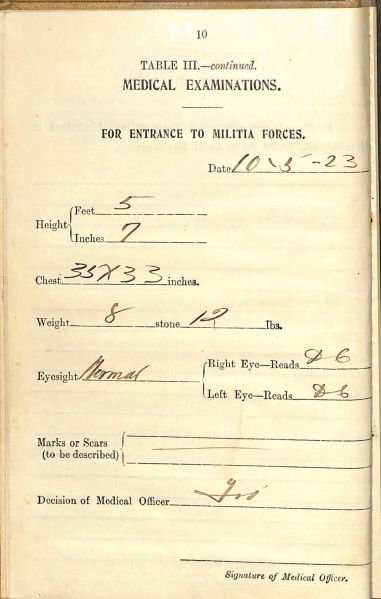 10
TABLE III.—continued.
MEDICAL EXAMINATIONS.
FOR ENTRANCE TO MILITIA FORCES.
Date 10-5-23
Height Feet 5
Inches 7
Chest 35 X 33 inches.
Weight 8 stone 12 lbs.
Eyesight Normal
Right Eye—Reads D6
Left Eye—Reads D6
Marks or Scars
(to be described)
Decision of Medical Officer
Signature of Medical Officer.